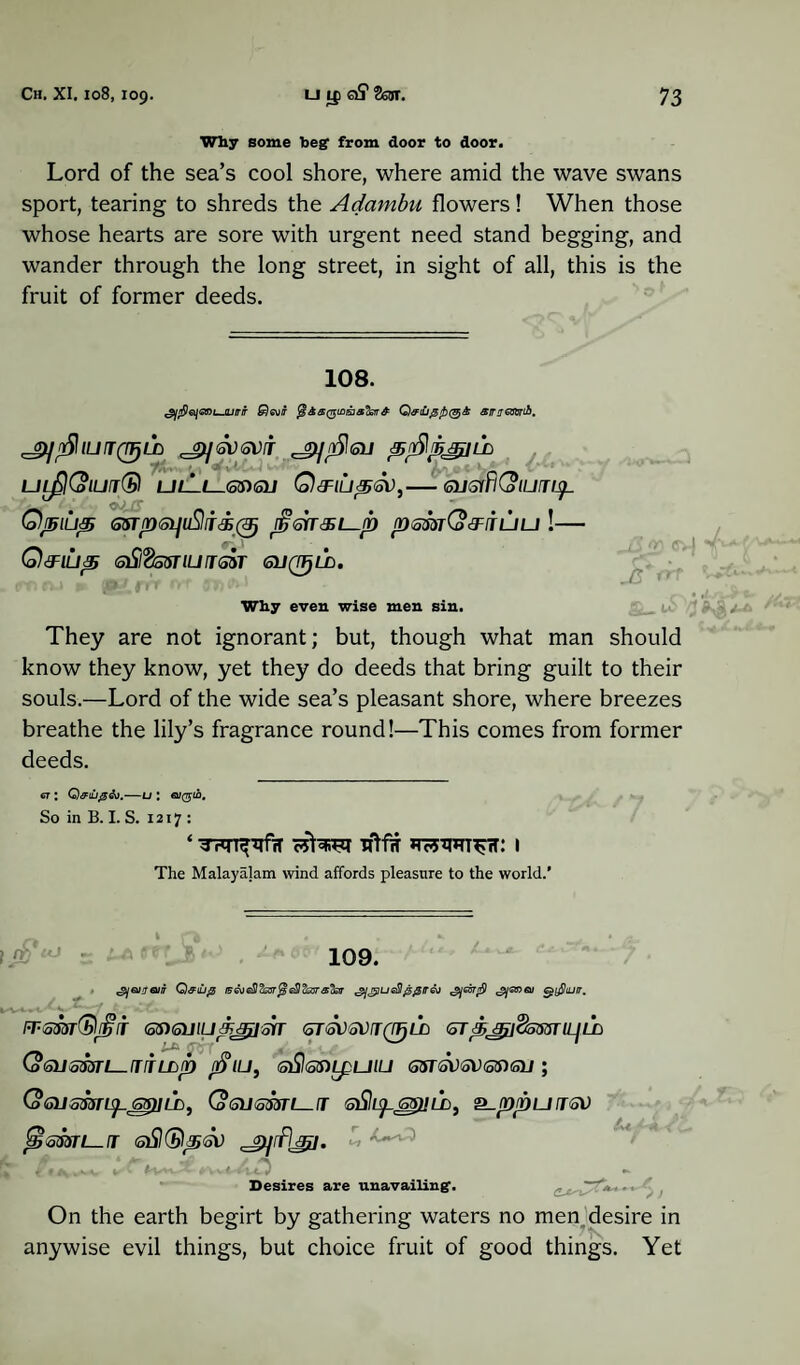 Ch. XI. 108, 109. பழவினை. 73
Why some beg from door to door.
Lord of the sea's cool shore, where amid the wave swans
sport, tearing to shreds the Adambu flowers! When those
whose hearts are sore with urgent need stand begging, and
wander through the long street, in sight of all, this is the
fruit of former deeds.
108.
அறிவுடையார் சிலர் தீக்கருமங்களைச் செய்தற்குக் காரணம்.
அறியாரும் அல்லர் அறிவ தறிந்தும்
பழியோடு பட்டவை செய்தல்,— வளியோடி
நெய்த னறவுயிர்க்கு நீள்கடற் றண்சேர்ப்ப !—
செய்த வினையான் வரும்.
Why even wise men sin.
They are not ignorant; but, though what man should
know they know, yet they do deeds that bring guilt to their
souls.—Lord of the wide sea's pleasant shore, where breezes
breathe the lily's fragrance round!—This comes from former
deeds.
எ : செய்தல்.—ப : வரும்.
So in B. I. S. 1217 :
‘उत्पादयति लोकस्य प्रीतिं मलयमारुतः ।
The Malayālam wind affords pleasure to the world.'
109.
அவரவர் செய்த நல்வினை தீவினைகளை அநுபவித்தால் அன்றி அவை ஒழியா.
ஈண்டுநீர் வையத்துள் எல்லாரும் எத்துணையும்
வேண்டார்மற் றீய, விழைபய னல்லவை ;
வேண்டினும், வேண்டா விடினும், உறற்பால
தீண்டா விடுதல் அரிது.
Desires are unavailing.
On the earth begirt by gathering waters no men desire in
anywise evil things, but choice fruit of good things. Yet